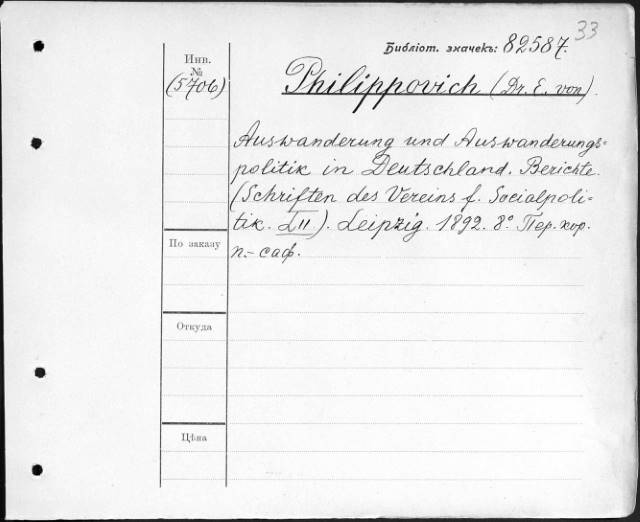 33
Библіот. значекъ: 82587.
Инв.
№
(5706)
Philippovich (Dr. E. von).
Auswanderung und Auswanderungs=
politik in Deutschland. Berichte.
(Schriften des Vereins f. Socialpoli-
tik. LII). Leipzig. 1892. 8° Пер. кор.
п.-саф.
По заказу
Откуда
Цѣна